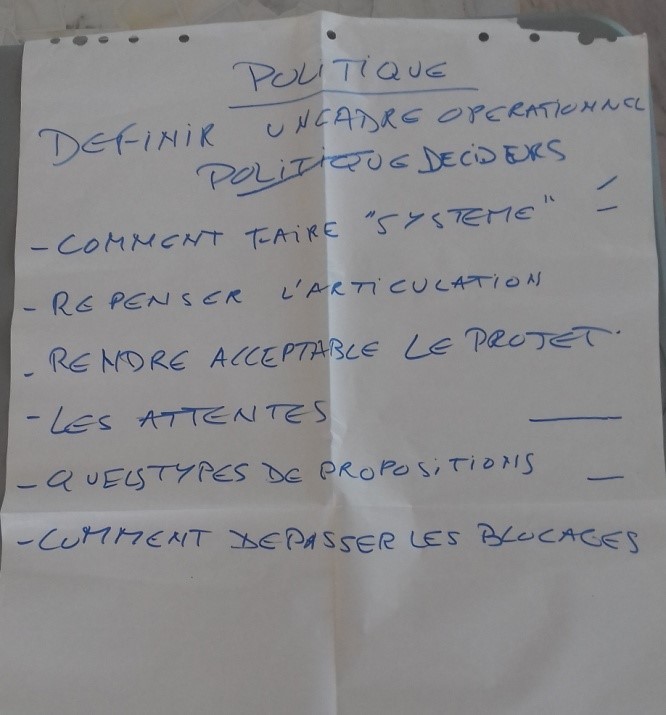 POLITIQUE
DEFINIR UN CADRE OPERATIONNEL
POLITIQUE DECIDEURS
- COMMENT FAIRE "SYSTEME"
- REPENSER L'ARTICULATION
- RENDRE ACCEPTABLE LE PROJET.
- LES ATTENTES
- QUELS TYPES DE PROPOSITIONS
- COMMENT DEPASSER LES BLOCAGES